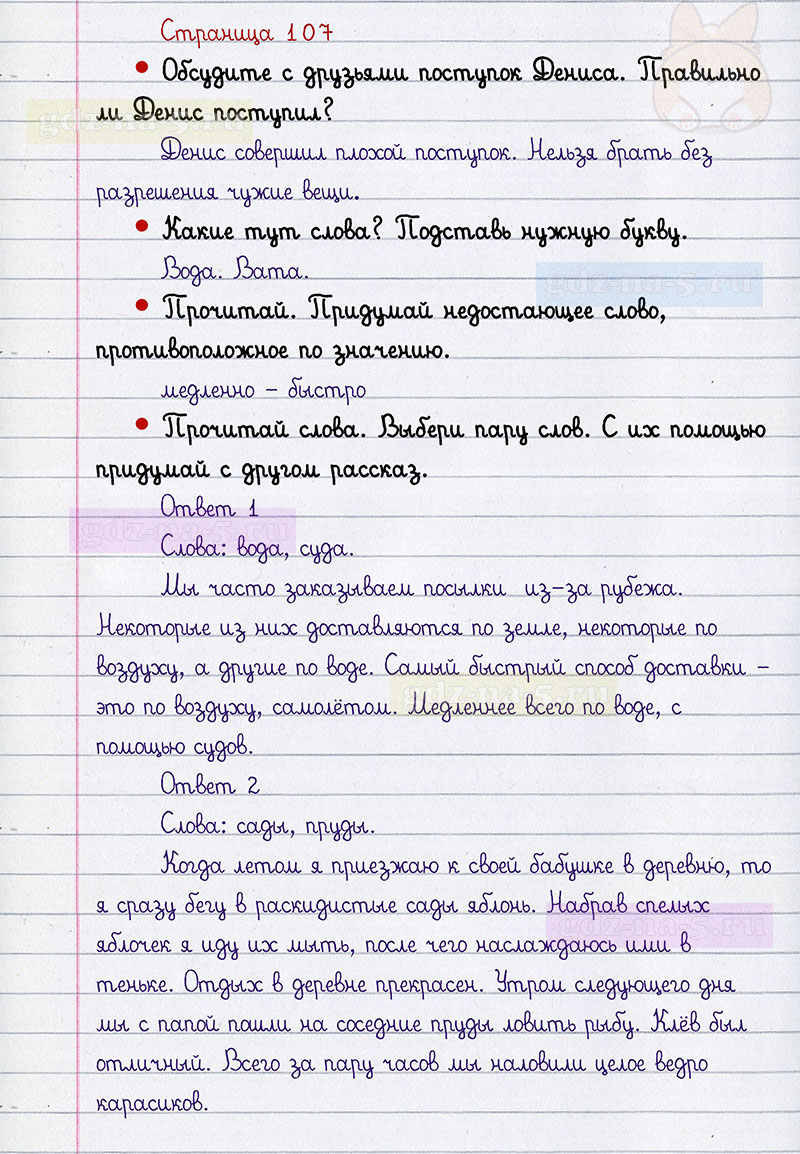 Страница 107
• Обсудите с друзьями поступок Дениса. Правильно
ли Денис поступил?
gdz-na-5.ru
Денис совершил плохой поступок. Нельзя брать без
разрешения чужие вещи.
• Какие тут слова? Подставь нужную букву.
Вода. Вата.
gdz-na-5.ru
• Прочитай. Придумай недостающее слово,
противоположное по значению.
медленно – быстро
• Прочитай слова. Выбери пару слов. С их помощью
придумай с другом рассказ.
Ответ 1
gdz-na-5.ru
Слова: вода, суда.
Мы часто заказываем посылки из-за рубежа.
Некоторые из них доставляются по земле, некоторые по
воздуху, а другие по воде. Самый быстрый способ доставки –
gdz-na-5.ru
это по воздуху, самолётом. Медленнее всего по воде, с
помощью судов.
Ответ 2
Слова: сады, пруды.
Когда летом я приезжаю к своей бабушке в деревню, то
я сразу бегу в раскидистые сады яблонь. Набрав спелых
gdz-na-5.ru
яблочек я иду их мыть, после чего наслаждаюсь ими в
теньке. Отдых в деревне прекрасен. Утром следующего дня
мы с папой пошли на соседние пруды ловить рыбу. Клёв был
отличный. Всего за пару часов мы наловили целое ведро
карасиков.